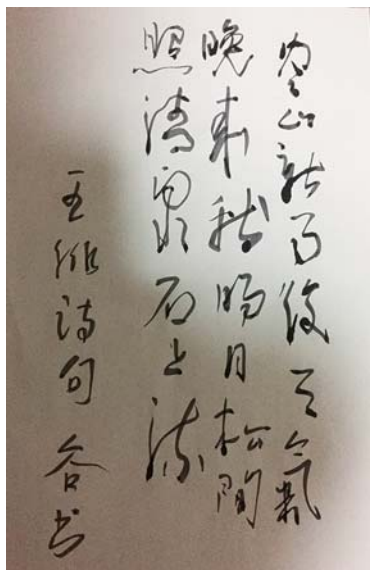 空山新雨後天氣
晚来秋明月松間
照清泉石上流
王维诗句 谷书